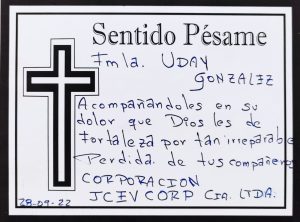 Sentido Pésame
Fmla. UDAY
GONZALEZ
Acompañandoles en su
dolor que Dios les de
fortaleza por tan irreparable
Perdida. de tus compañeros
CORPORACION
JCEV CORP Cia. LTDA.
28-09-22